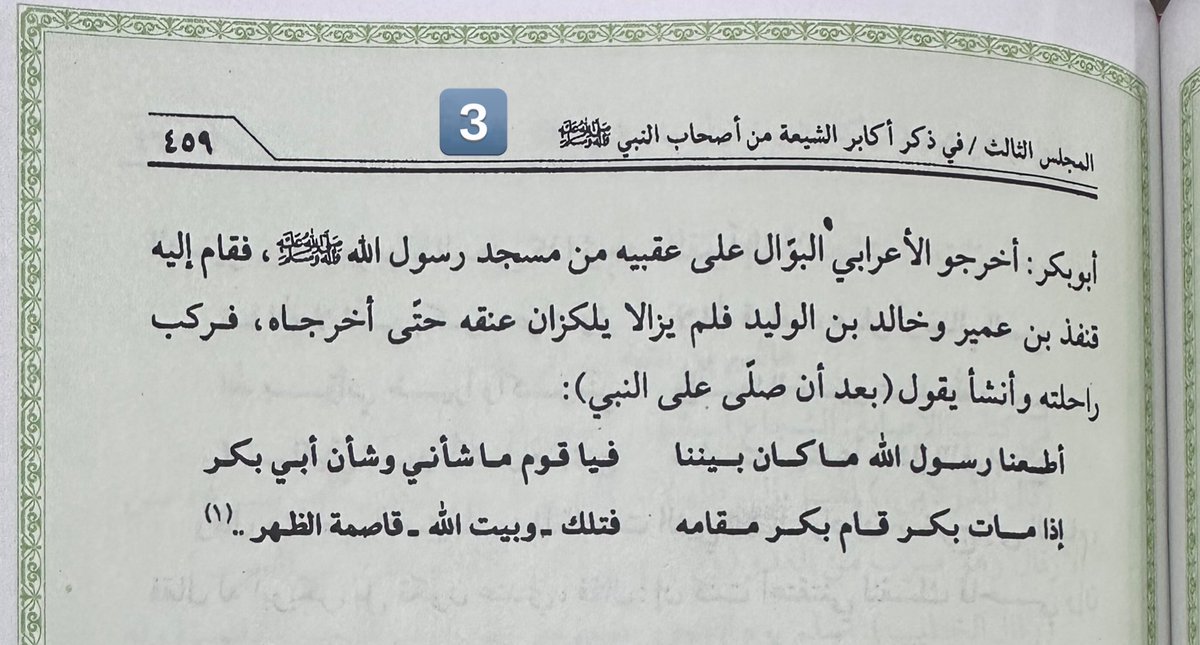 المجلس الثالث / في ذكر أكابر الشيعة من أصحاب النبي ﷺ
3
٤٥٩
أبوبكر: أخرجو الأعرابي البوّال على عقبيه من مسجد رسول الله ﷺ، فقام إليه
قنفذ بن عمير وخالد بن الوليد فلم يزالا يلكزان عنقه حتّى أخرجاه، فركب
راحلته وأنشأ يقول (بعد أن صلّى على النبي):
أطعنا رسول الله ماكان بيننا فيا قوم ماشأني وشأن أبي بكر
إذا مات بكر قام بكر مقامه فتلك ـ وبيت الله ـ قاصمة الظهر ..(١)